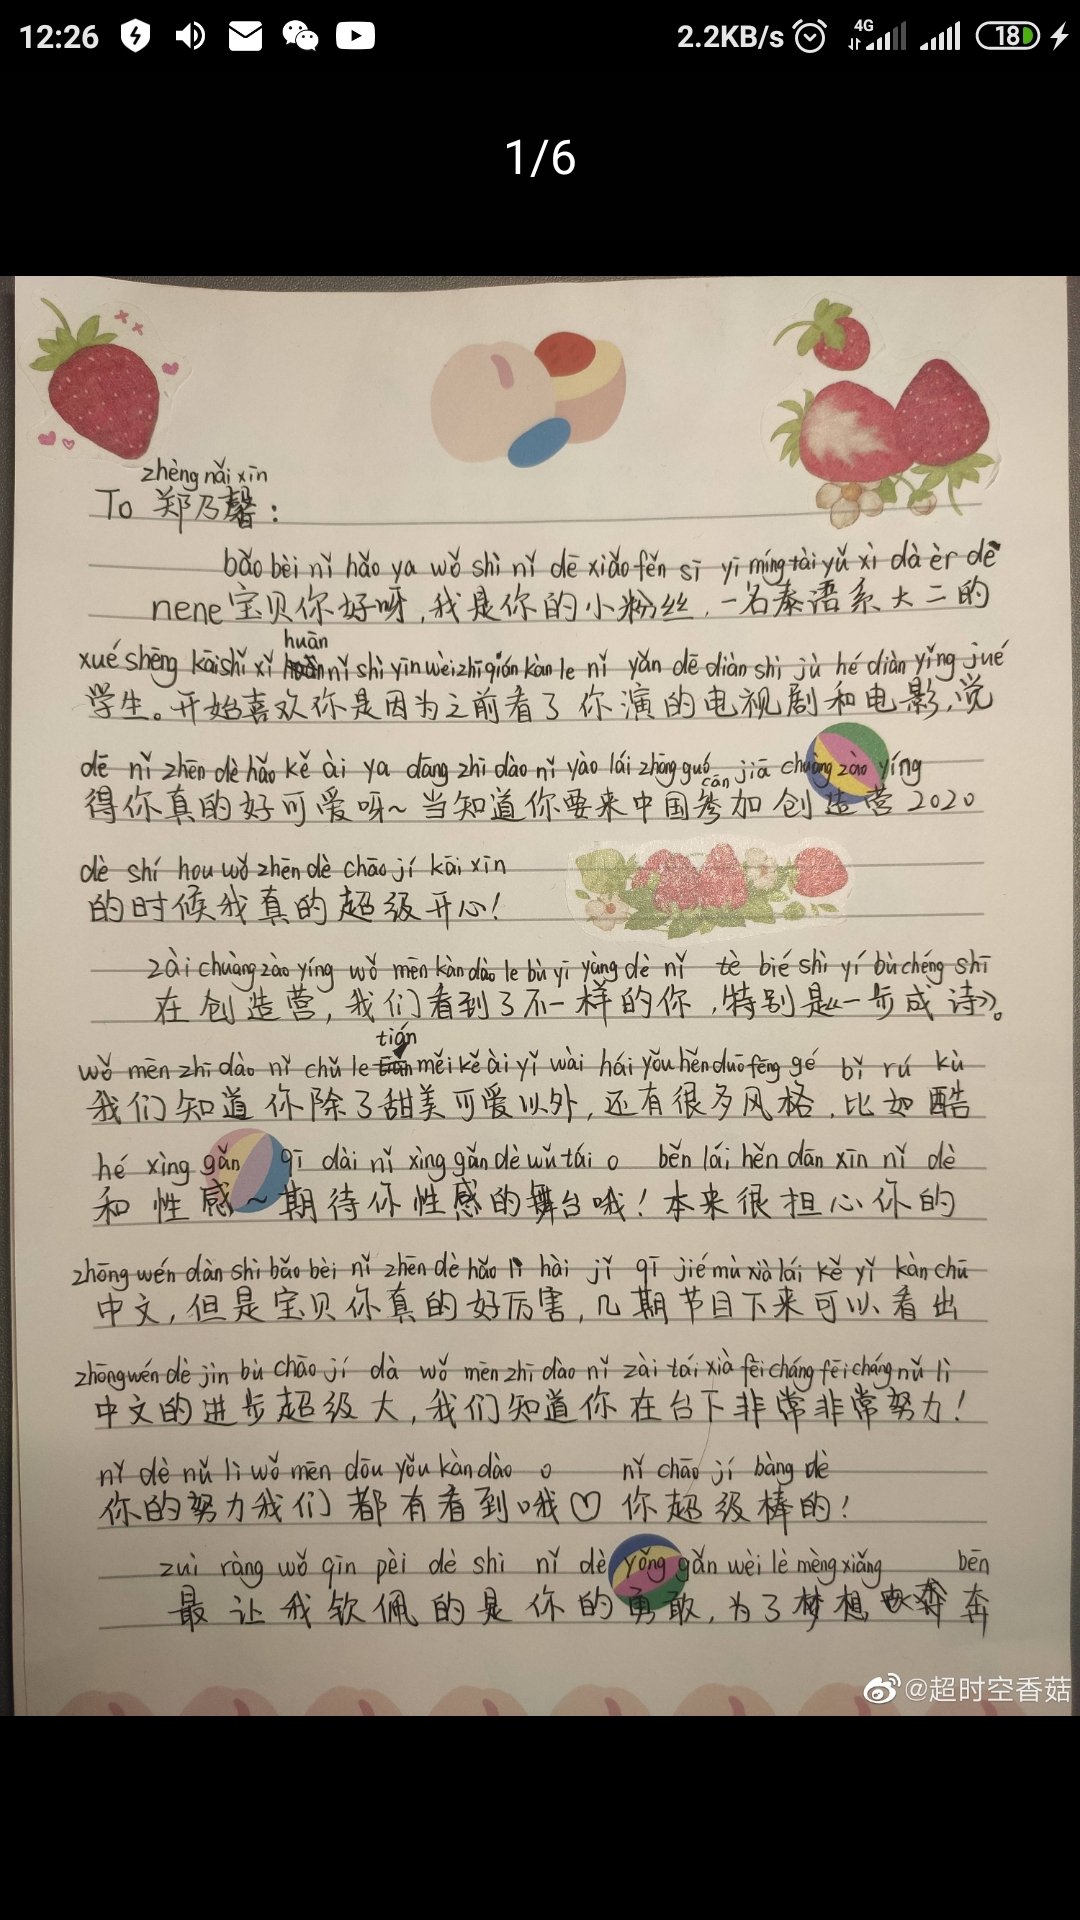 12:26
2.2KB/s
4G
18
1/6
zhèng nǎi xīn
To 郑乃馨:
bǎo bèi nǐ hǎo ya wǒ shì nǐ dē xiǎo fěn sī yī míng tài yǔ xì dà èr dē
nene宝贝你好呀,我是你的小粉丝,一名泰语系大二的
huān
xué shēng kāi shǐ xǐ nǐ shì yīn wèi zhī qián kàn le nǐ yǎn dē diàn shì jù hé diàn yǐng jué
学生。开始喜欢你是因为之前看了你演的电视剧和电影,觉
dē nǐ zhēn dè hǎo kě ài ya dāng zhī dào nǐ yào lái zhōng guó cān jiā chuàng zào yíng
得你真的好可爱呀~当知道你要来中国参加创造营2020
dè shí hou wǒ zhēn dè chāo jí kāi xīn
的时候我真的超级开心!
zài chuàng zào yíng wǒ mēn kàn dào le bù yī yàng dè nǐ tè bié shì yí bù chéng shī
在创造营,我们看到了不一样的你,特别是《一步成诗》。
tián
wǒ mēn zhī dào nǐ chǔ le měi kě ài yǐ wài hái yǒu hěn duō fēng gé bǐ rú kù
我们知道你除了甜美可爱以外,还有很多风格,比如酷
hé xìng gǎn qī dài nǐ xìng gǎn dè wǔ tái o běn lái hěn dān xīn nǐ dè
和性感~期待你性感的舞台哦!本来很担心你的
zhōng wén dàn shì bǎo bèi nǐ zhēn dè hǎo lì hài jǐ qī jié mù xià lái kě yǐ kàn chū
中文,但是宝贝你真的好厉害,几期节目下来可以看出
zhōng wén dè jìn bù chāo jí dà wǒ mēn zhī dào nǐ zài tái xià fēi cháng fēi cháng nǔ lì
中文的进步超级大,我们知道你在台下非常非常努力!
nǐ dè nǔ lì wǒ mēn dōu yǒu kàn dào o nǐ chāo jí bàng dè
你的努力我们都有看到哦♡你超级棒的!
zuì ràng wǒ qīn pèi dè shì nǐ dè yǒng gǎn wèi lè mèng xiǎng bēn
最让我钦佩的是你的勇敢,为了梦想 奔
@超时空香菇